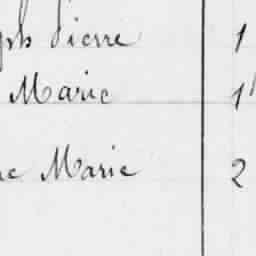 ph Pierre 1
Marie 1
Marie 2